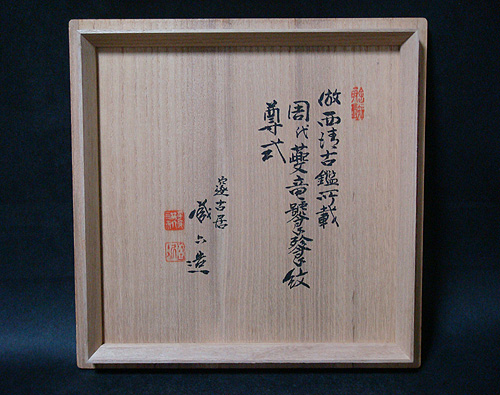 倣西清古鑑所載
周代夔竜饕餮紋
尊式
邃古居
蔵六造